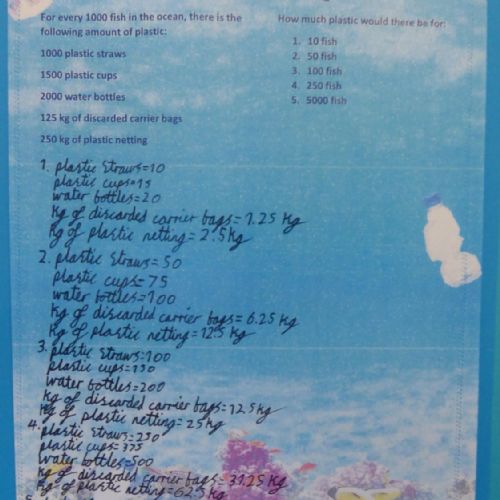 For every 1000 fish in the ocean, there is the
following amount of plastic:
1000 plastic straws
1500 plastic cups
2000 water bottles
125 kg of discarded carrier bags
250 kg of plastic netting
How much plastic would there be for:
1. 10 fish
2. 50 fish
3. 100 fish
4. 250 fish
5. 5000 fish
1. plastic straws=10
plastic cups=15
water bottles=20
Kg of discarded carrier bags=1.25 Kg
Kg of plastic netting=2.5kg
2. plastic straws=50
plastic cups=75
water bottles=100
Kg of discarded carrier bags=6.25 Kg
Kg of plastic netting=12.5 kg
3. plastic straws=100
plastic cups=150
water bottles=200
Kg of discarded carrier bags=12.5kg
Kg of plastic netting=25kg
4. plastic straws=250
plastic cups=375
water bottles=500
Kg of discarded carrier bags=31.25 Kg
Kg of plastic netting=62.5kg